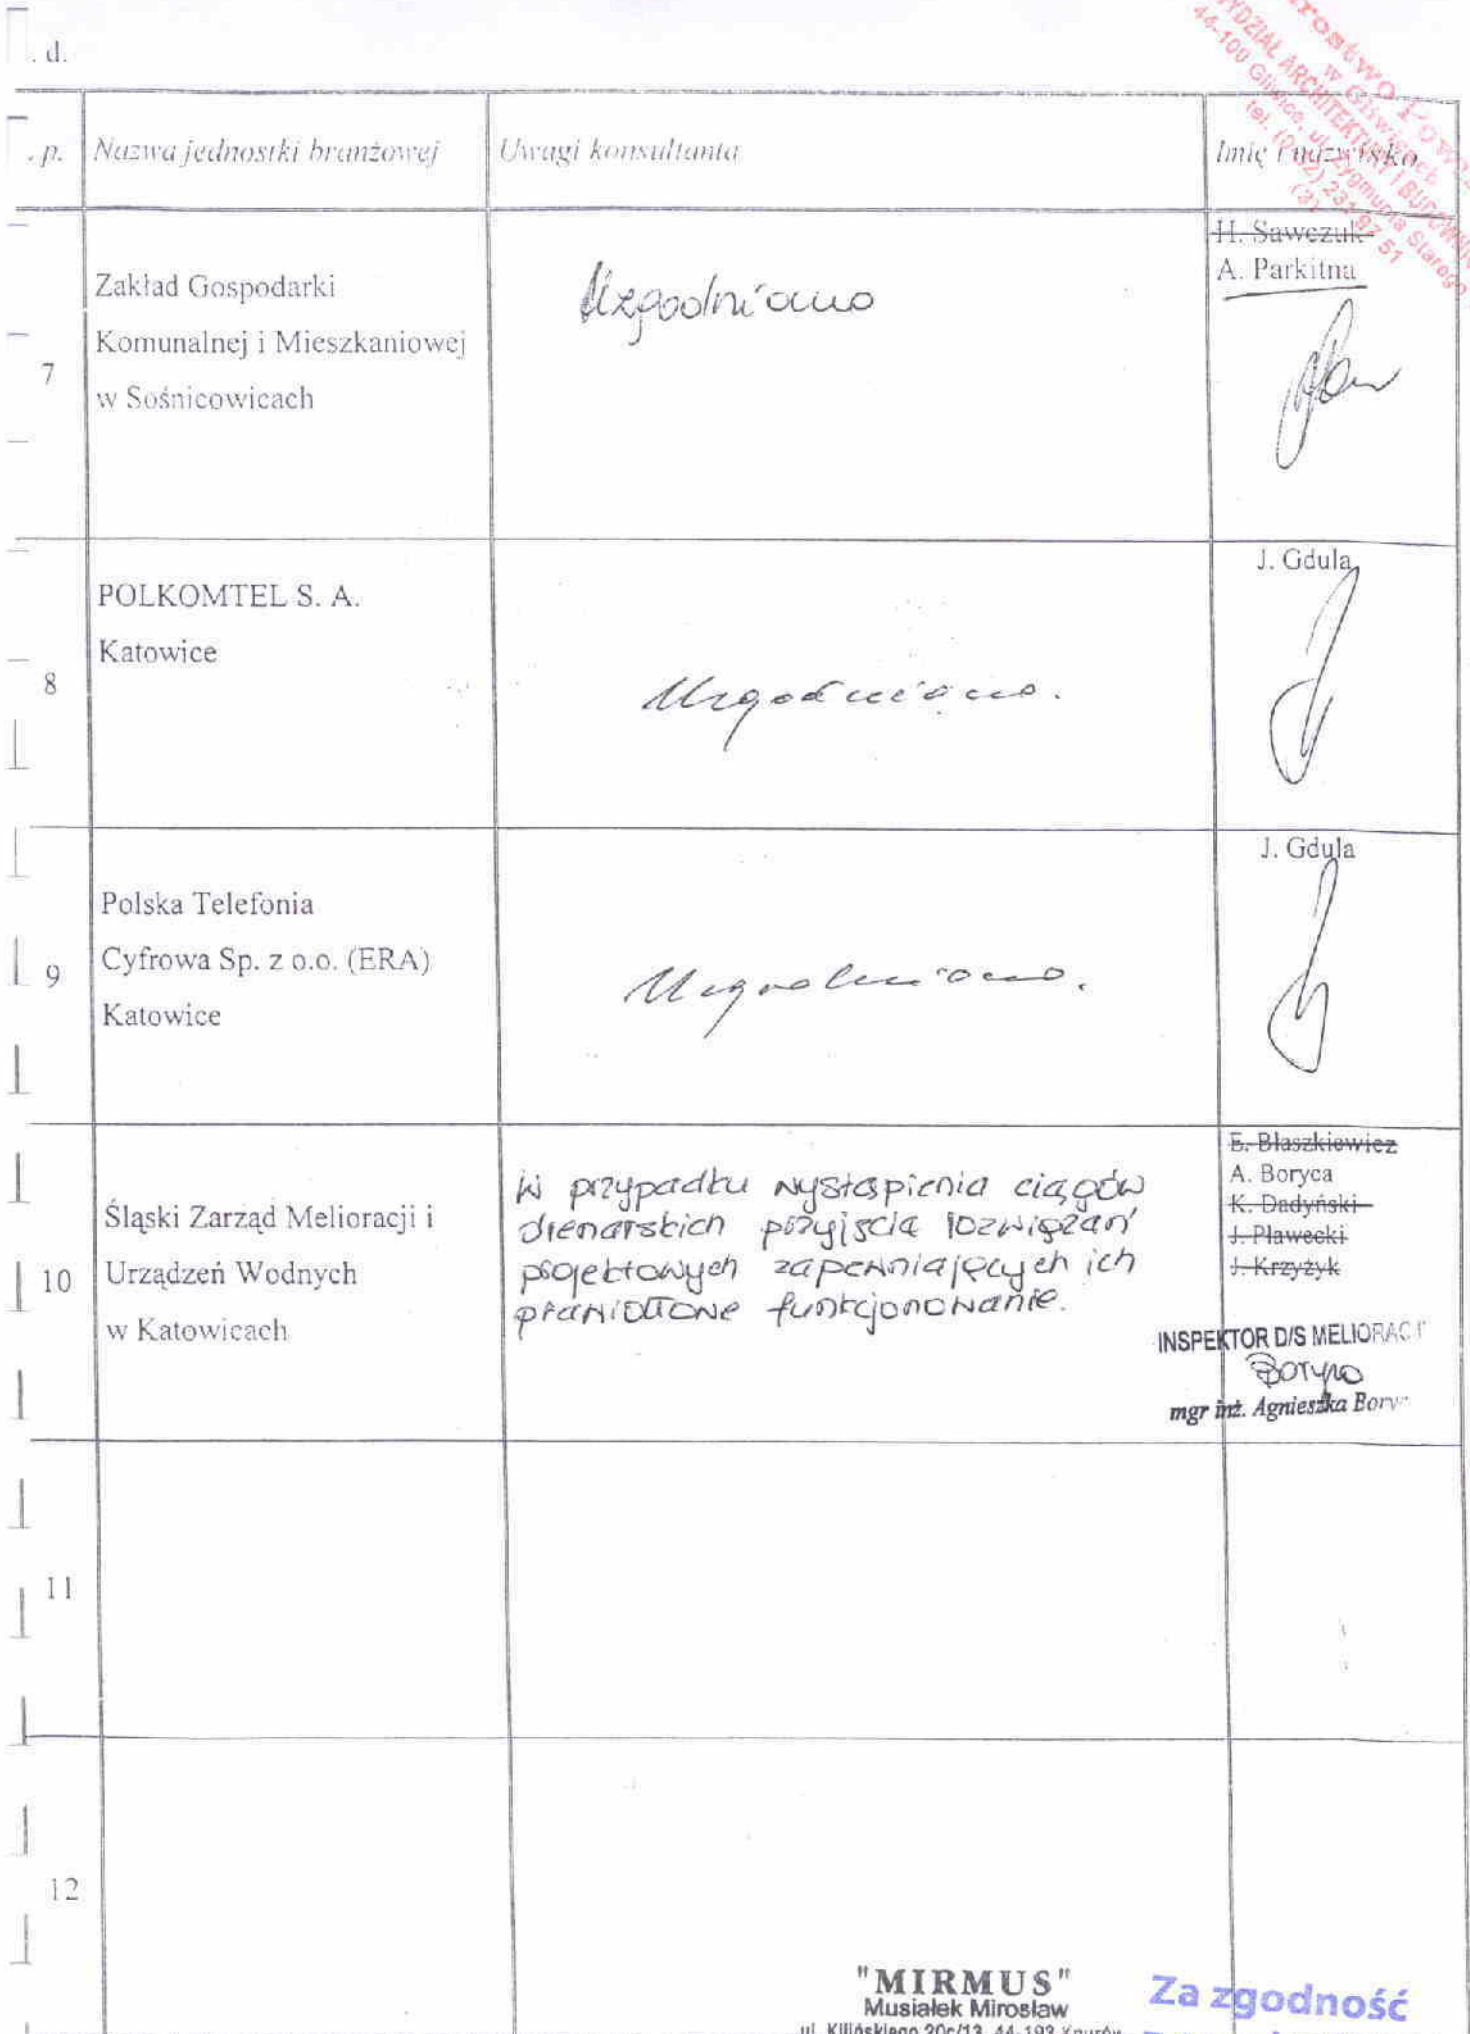 . d.
.p. Nazwa jednostki branżowej Uwagi konsultanta Imię i nazwisko
7
Zakład Gospodarki
Komunalnej i Mieszkaniowej
w Sośnicowicach
Uzgodniono
H. Sawczuk
A. Parkitna
8
POLKOMTEL S. A.
Katowice
Uzgodniono.
J. Gdula
9
Polska Telefonia
Cyfrowa Sp. z o.o. (ERA)
Katowice
Uzgodniono.
J. Gdula
10
Śląski Zarząd Melioracji i
Urządzeń Wodnych
w Katowicach
W przypadku wystąpienia ciągów
drenarskich przyjścia rozwiązań
projektowych zapewniających ich
prawidłowe funkcjonowanie.
E. Błaszkiewicz
A. Boryca
K. Dadyński
J. Pławecki
J. Krzyżyk
INSPEKTOR D/S MELIORACJI
mgr inż. Agnieszka Bory
11
12
"MIRMUS"
Musiałek Mirosław
ul. Kilińskiego 20c/13, 44-193 Knurów
Za zgodność
WYDZIAŁ ARCHITEKTURY I BUDOWNI
44-100 Gliwice, ul. Zygmunta Starego